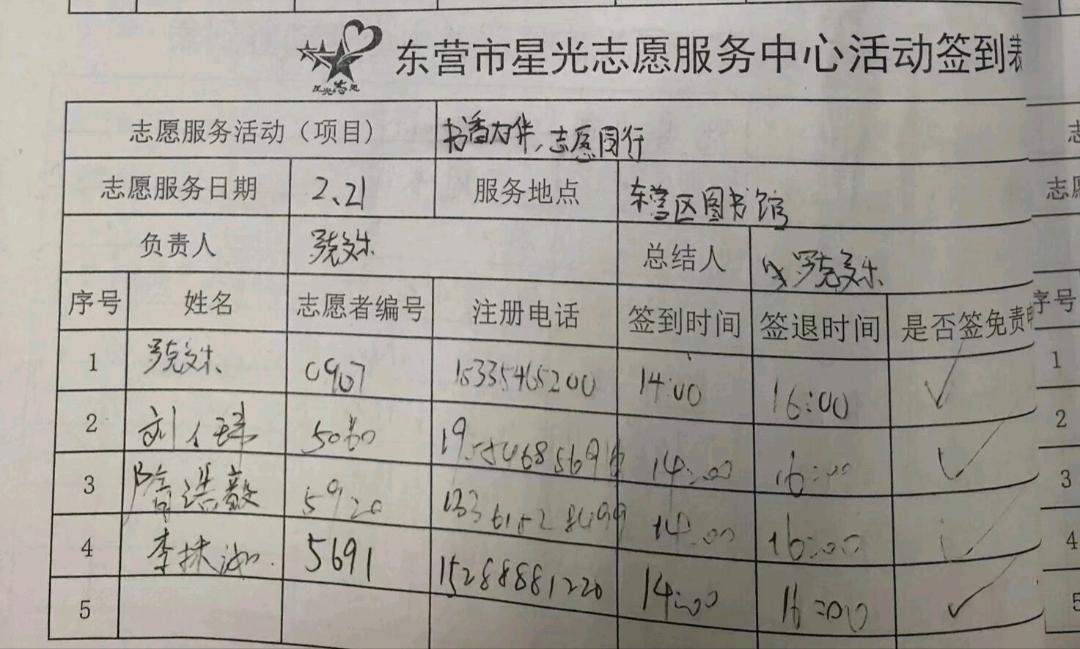 星光志愿
东营市星光志愿服务中心活动签到表
志愿服务活动（项目） 书香为伴，志愿同行
志愿服务日期 2.21 服务地点 东营区图书馆
负责人 总结人
序号 姓名 志愿者编号 注册电话 签到时间 签退时间 是否签免责
1 0907 15335465200 14:00 16:00 ✓
2 刘 5080 14:00 16:00 ✓
3 5920 14:00 16:00 ✓
4 李 5691 15288881220 14:00 16:00 ✓
5
志愿
序号
1
2
3
4
5